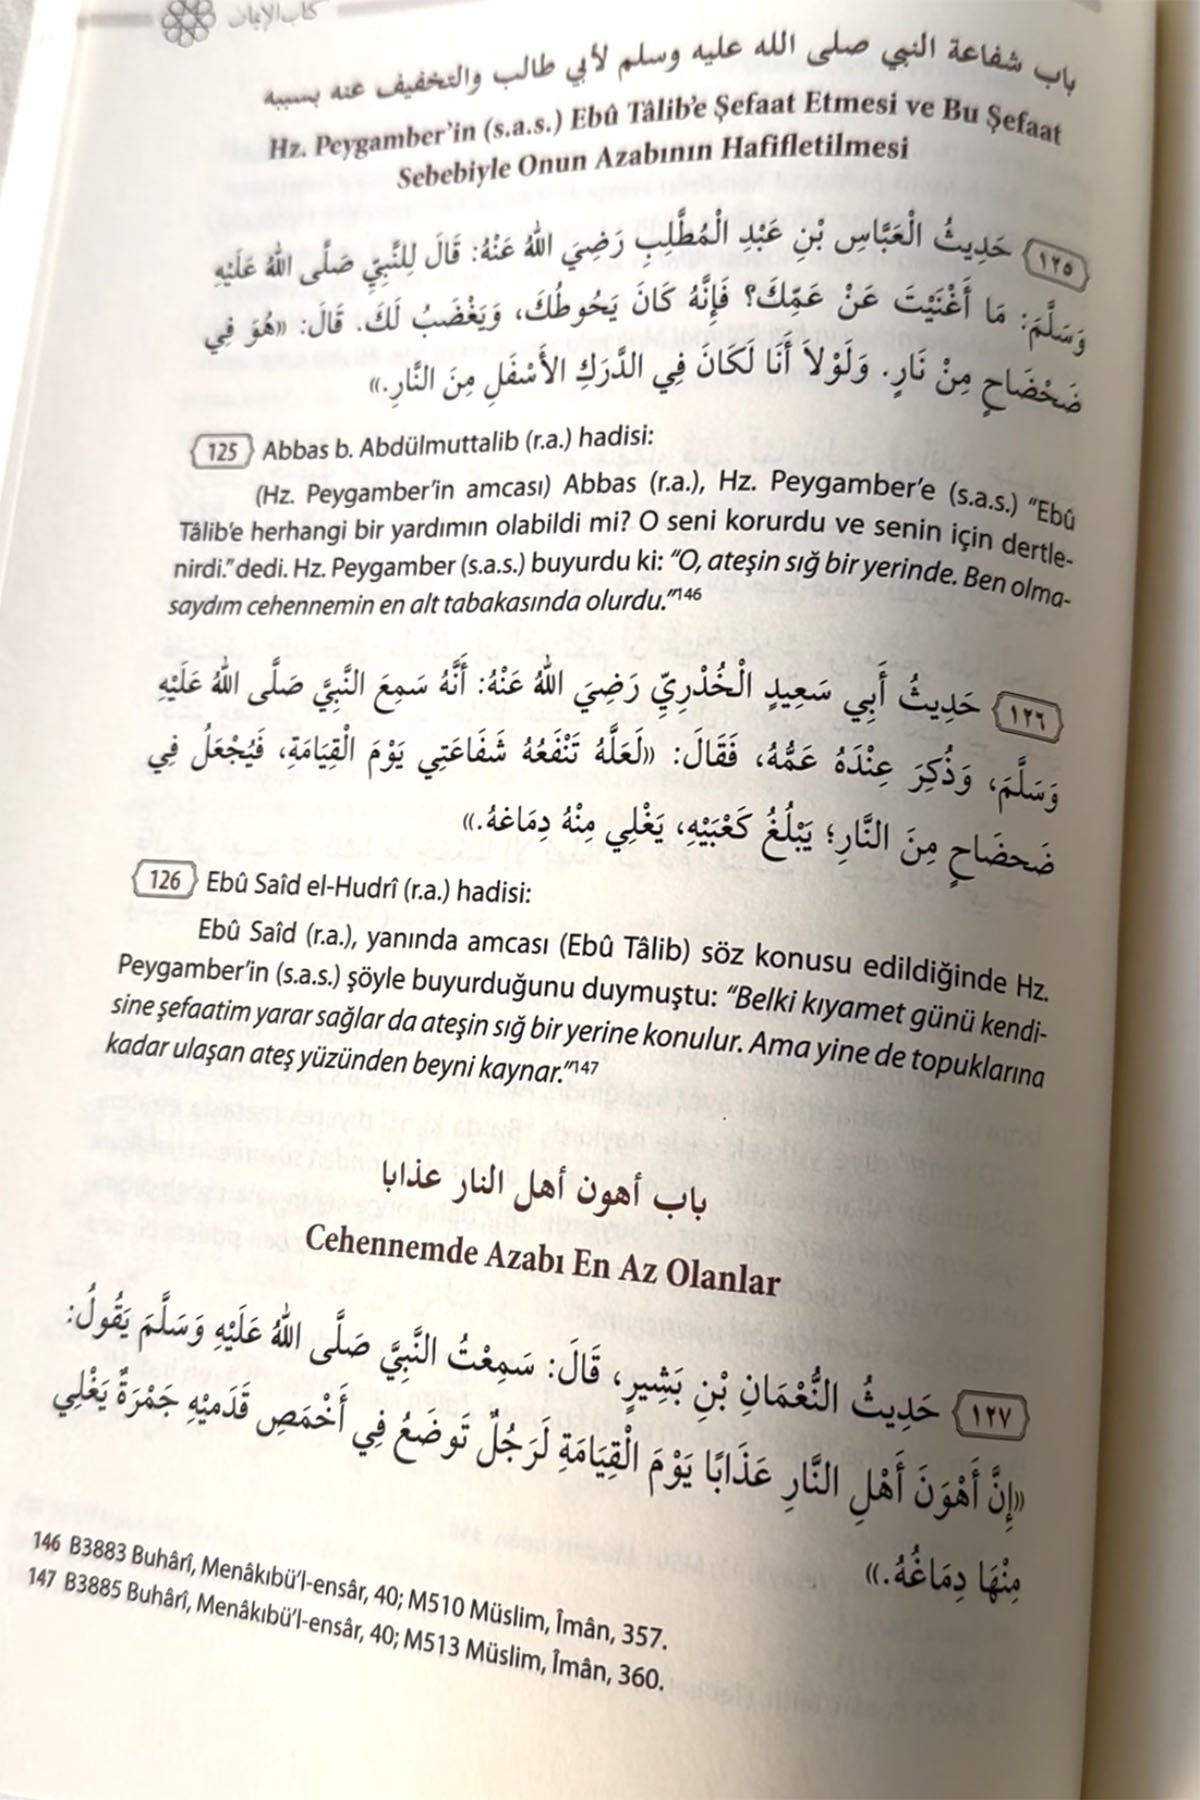 كتاب الإيمان
باب شفاعة النبي صلى الله عليه وسلم لأبي طالب والتخفيف عنه بسببه
Hz. Peygamber’in (s.a.s.) Ebû Tâlib’e Şefaat Etmesi ve Bu Şefaat
Sebebiyle Onun Azabının Hafifletilmesi
١٢٥ حَدِيثُ الْعَبَّاسِ بْنِ عَبْدِ الْمُطَّلِبِ رَضِيَ اللهُ عَنْهُ: قَالَ لِلنَّبِيِّ صَلَّى اللهُ عَلَيْهِ
وَسَلَّمَ: مَا أَغْنَيْتَ عَنْ عَمِّكَ؟ فَإِنَّهُ كَانَ يَحُوطُكَ، وَيَغْضَبُ لَكَ. قَالَ: «هُوَ فِي
ضَحْضَاحٍ مِنْ نَارٍ. وَلَوْلاَ أَنَا لَكَانَ فِي الدَّرَكِ الأَسْفَلِ مِنَ النَّارِ.»
125 Abbas b. Abdülmuttalib (r.a.) hadisi:
(Hz. Peygamber’in amcası) Abbas (r.a.), Hz. Peygamber’e (s.a.s.) “Ebû
Tâlib’e herhangi bir yardımın olabildi mi? O seni korurdu ve senin için dertle-
nirdi.” dedi. Hz. Peygamber (s.a.s.) buyurdu ki: “O, ateşin sığ bir yerinde. Ben olma-
saydım cehennemin en alt tabakasında olurdu.”146
١٢٦ حَدِيثُ أَبِي سَعِيدٍ الْخُدْرِيِّ رَضِيَ اللهُ عَنْهُ: أَنَّهُ سَمِعَ النَّبِيَّ صَلَّى اللهُ عَلَيْهِ
وَسَلَّمَ، وَذُكِرَ عِنْدَهُ عَمُّهُ، فَقَالَ: «لَعَلَّهُ تَنْفَعُهُ شَفَاعَتِي يَوْمَ الْقِيَامَةِ، فَيُجْعَلُ فِي
ضَحضَاحٍ مِنَ النَّارِ؛ يَبْلُغُ كَعْبَيْهِ، يَغْلِي مِنْهُ دِمَاغهُ.»
126 Ebû Saîd el-Hudrî (r.a.) hadisi:
Ebû Saîd (r.a.), yanında amcası (Ebû Tâlib) söz konusu edildiğinde Hz.
Peygamber’in (s.a.s.) şöyle buyurduğunu duymuştu: “Belki kıyamet günü kendi-
sine şefaatim yarar sağlar da ateşin sığ bir yerine konulur. Ama yine de topuklarına
kadar ulaşan ateş yüzünden beyni kaynar.”147
باب أهون أهل النار عذابا
Cehennemde Azabı En Az Olanlar
١٢٧ حَدِيثُ النُّعْمَانِ بْنِ بَشِيرٍ، قَالَ: سَمِعْتُ النَّبِيَّ صَلَّى اللهُ عَلَيْهِ وَسَلَّمَ يَقُولُ:
«إِنَّ أَهْوَنَ أَهْلِ النَّارِ عَذَابًا يَوْمَ الْقِيَامَةِ لَرَجُلٌ تَوضَعُ فِي أَخْمَصِ قَدَميْهِ جَمْرَةٌ يَغْلِي
مِنْهَا دِمَاغُهُ.»
146 B3883 Buhârî, Menâkıbü’l-ensâr, 40; M510 Müslim, Îmân, 357.
147 B3885 Buhârî, Menâkıbü’l-ensâr, 40; M513 Müslim, Îmân, 360.